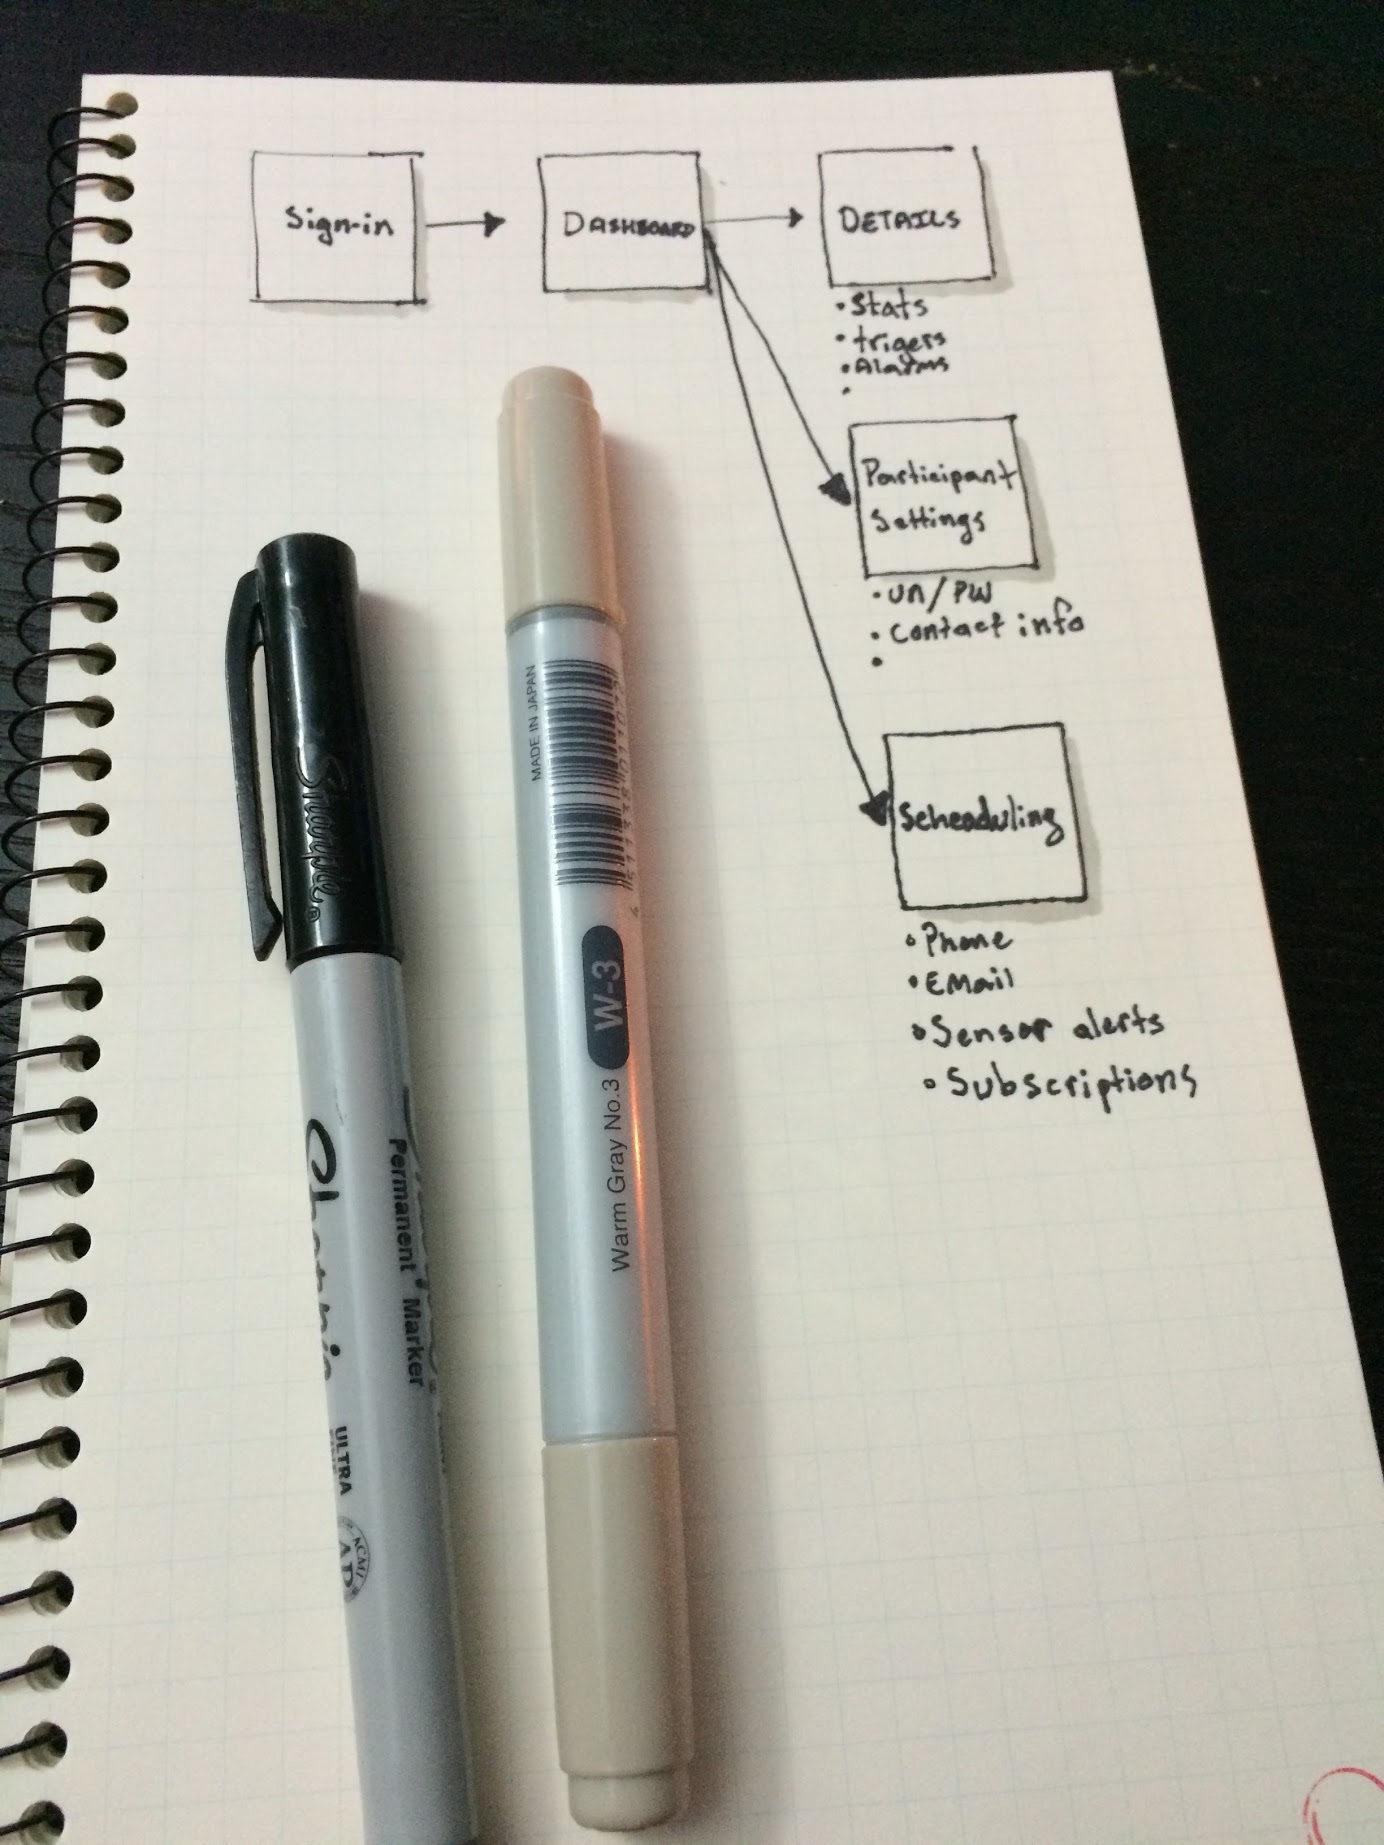 Sign-in
DASHBOARD
DETAILS
• Stats
• trigers
• Alarms
•
Participant
Settings
• un/PW
• Contact info
•
Scheaduling
• Phone
• EMail
• Sensor alerts
• Subscriptions
Sharpie®
Sharpie
Permanent Marker
ULTRA
ACMI
AP
MADE IN JAPAN
W-3
Warm Gray No.3